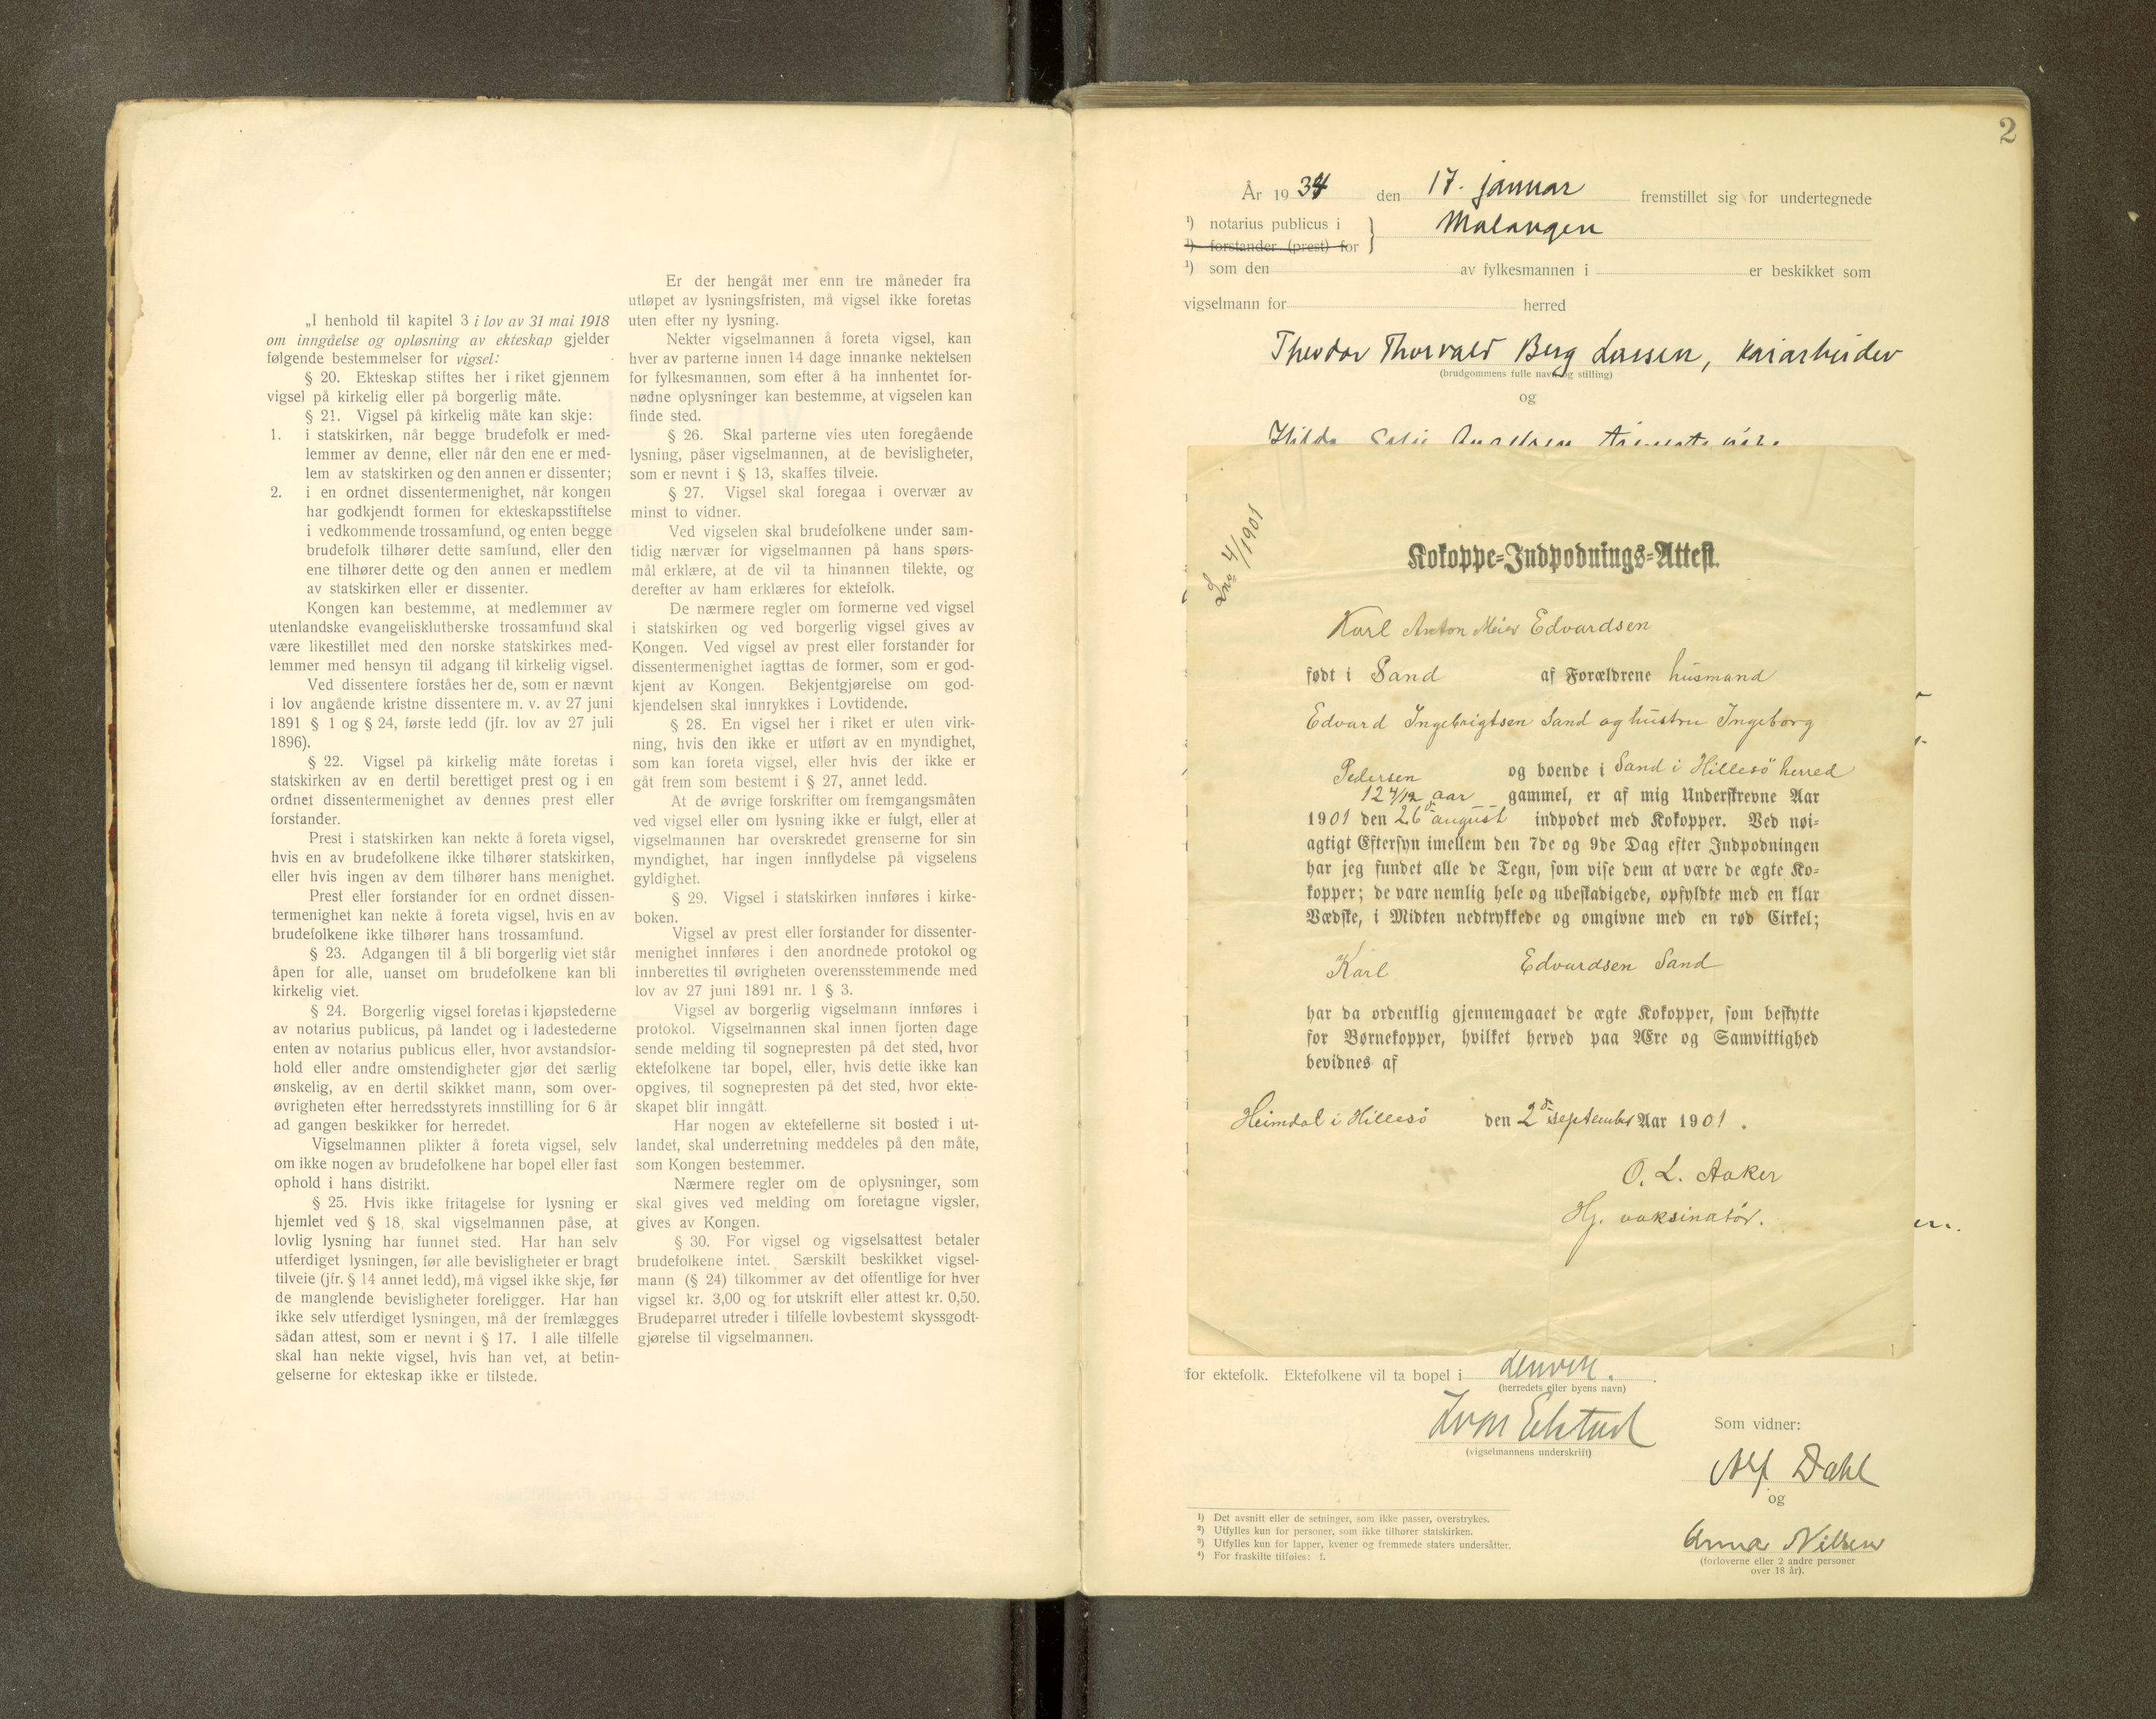 „I henhold til kapitel 3 i lov av 31 mai 1918
om inngåelse og opløsning av ekteskap gjelder
følgende bestemmelser for vigsel:
§ 20. Ekteskap stiftes her i riket gjennem
vigsel på kirkelig eller på borgerlig måte.
§ 21. Vigsel på kirkelig måte kan skje:
1. i statskirken, når begge brudefolk er med-
lemmer av denne, eller når den ene er med-
lem av statskirken og den annen er dissenter;
2. i en ordnet dissentermenighet, når kongen
har godkjendt formen for ekteskapsstiftelse
i vedkommende trossamfund, og enten begge
brudefolk tilhører dette samfund, eller den
ene tilhører dette og den annen er medlem
av statskirken eller er dissenter.
Kongen kan bestemme, at medlemmer av
utenlandske evangelisklutherske trossamfund skal
være likestillet med den norske statskirkes med-
lemmer med hensyn til adgang til kirkelig vigsel.
Ved dissentere forståes her de, som er nævnt
i lov angående kristne dissentere m. v. av 27 juni
1891 § 1 og § 24, første ledd (jfr. lov av 27 juli
1896).
§ 22. Vigsel på kirkelig måte foretas i
statskirken av en dertil berettiget prest og i en
ordnet dissentermenighet av dennes prest eller
forstander.
Prest i statskirken kan nekte å foreta vigsel,
hvis en av brudefolkene ikke tilhører statskirken,
eller hvis ingen av dem tilhører hans menighet.
Prest eller forstander for en ordnet dissen-
termenighet kan nekte å foreta vigsel, hvis en av
brudefolkene ikke tilhører hans trossamfund.
§ 23. Adgangen til å bli borgerlig viet står
åpen for alle, uanset om brudefolkene kan bli
kirkelig viet.
§ 24. Borgerlig vigsel foretas i kjøpstederne
av notarius publicus, på landet og i ladestederne
enten av notarius publicus eller, hvor avstandsfor-
hold eller andre omstendigheter gjør det særlig
ønskelig, av en dertil skikket mann, som over-
øvrigheten efter herredsstyrets innstilling for 6 år
ad gangen beskikker for herredet.
Vigselmannen plikter å foreta vigsel, selv
om ikke nogen av brudefolkene har bopel eller fast
ophold i hans distrikt.
§ 25. Hvis ikke fritagelse for lysning er
hjemlet ved § 18, skal vigselmannen påse, at
lovlig lysning har funnet sted. Har han selv
utferdiget lysningen, før alle bevisligheter er bragt
tilveie (jfr. § 14 annet ledd), må vigsel ikke skje, før
de manglende bevisligheter foreligger. Har han
ikke selv utferdiget lysningen, må der fremlægges
sådan attest, som er nevnt i § 17. I alle tilfelle
skal han nekte vigsel, hvis han vet, at betin-
gelserne for ekteskap ikke er tilstede.
Er der hengåt mer enn tre måneder fra
utløpet av lysningsfristen, må vigsel ikke foretas
uten efter ny lysning.
Nekter vigselmannen å foreta vigsel, kan
hver av parterne innen 14 dage innanke nektelsen
for fylkesmannen, som efter å ha innhentet for-
nødne oplysninger kan bestemme, at vigselen kan
finde sted.
§ 26. Skal parterne vies uten foregående
lysning, påser vigselmannen, at de bevisligheter,
som er nevnt i § 13, skaffes tilveie.
§ 27. Vigsel skal foregaa i overvær av
minst to vidner.
Ved vigselen skal brudefolkene under sam-
tidig nærvær for vigselmannen på hans spørs-
mål erklære, at de vil ta hinannen tilekte, og
derefter av ham erklæres for ektefolk.
De nærmere regler om formerne ved vigsel
i statskirken og ved borgerlig vigsel gives av
Kongen. Ved vigsel av prest eller forstander for
dissentermenighet iagttas de former, som er god-
kjent av Kongen. Bekjentgjørelse om god-
kjendelsen skal innrykkes i Lovtidende.
§ 28. En vigsel her i riket er uten virk-
ning, hvis den ikke er utført av en myndighet,
som kan foreta vigsel, eller hvis der ikke er
gåt frem som bestemt i § 27, annet ledd.
At de øvrige forskrifter om fremgangsmåten
ved vigsel eller om lysning ikke er fulgt, eller at
vigselmannen har overskredet grenserne for sin
myndighet, har ingen innflydelse på vigselens
gyldighet.
§ 29. Vigsel i statskirken innføres i kirke-
boken.
Vigsel av prest eller forstander for dissenter-
menighet innføres i den anordnede protokol og
innberettes til øvrigheten overensstemmende med
lov av 27 juni 1891 nr. 1 § 3.
Vigsel av borgerlig vigselmann innføres i
protokol. Vigselmannen skal innen fjorten dage
sende melding til sognepresten på det sted, hvor
ektefolkene tar bopel, eller, hvis dette ikke kan
opgives, til sognepresten på det sted, hvor ekte-
skapet blir inngått.
Har nogen av ektefellerne sit bosted i ut-
landet, skal underretning meddeles på den måte,
som Kongen bestemmer.
Nærmere regler om de oplysninger, som
skal gives ved melding om foretagne vigsler,
gives av Kongen.
§ 30. For vigsel og vigselsattest betaler
brudefolkene intet. Særskilt beskikket vigsel-
mann (§ 24) tilkommer av det offentlige for hver
vigsel kr. 3,00 og for utskrift eller attest kr. 0,50.
Brudeparret utreder i tilfelle lovbestemt skyssgodt-
gjørelse til vigselmannen.
2
År 1934 den 17. januar fremstillet sig for undertegnede
¹) notarius publicus i } Malangen
¹) forstander (prest) for
¹) som den av fylkesmannen i er beskikket som
vigselmann for herred
Theodor Thorvald Berg Lassen, kaiarbeider
(brudgommens fulle navn og stilling)
og
Hilda
Lno 4/1901
Kokoppe-Indpodnings-Attest.
Karl Anton Meier Edvardsen
født i Sand af Forældrene husmand
Edvard Ingebrigtsen Sand og hustru Ingeborg
Pedersen og boende i Sand i Hillesö herred
12 4/12 aar gammel, er af mig Underskrevne Aar
1901 den 26d august indpodet med Kokopper. Ved nøi-
agtigt Eftersyn imellem den 7de og 9de Dag efter Indpodningen
har jeg fundet alle de Tegn, som vise dem at være de ægte Ko-
kopper; de vare nemlig hele og ubeskadigede, opfyldte med en klar
Vædske, i Midten nedtrykkede og omgivne med en rød Cirkel;
Karl Edvardsen Sand
har da ordentlig gjennemgaaet de ægte Kokopper, som beskytte
for Børnekopper, hvilket herved paa Ære og Samvittighed
bevidnes af
Heimdal i Hillesö den 2d september Aar 1901.
O. L. Aaker
Hj. vaksinatör.
for ektefolk. Ektefolkene vil ta bopel i Lenvik.
(herredets eller byens navn)
(vigselmannens underskrift)
Som vidner:
Alf Dahl
og
Anna Nilsen
(forloverne eller 2 andre personer
over 18 år).
¹) Det avsnitt eller de setninger, som ikke passer, overstrykes.
²) Utfylles kun for personer, som ikke tilhører statskirken.
³) Utfylles kun for lapper, kvener og fremmede staters undersåtter.
⁴) For fraskilte tilføies: f.